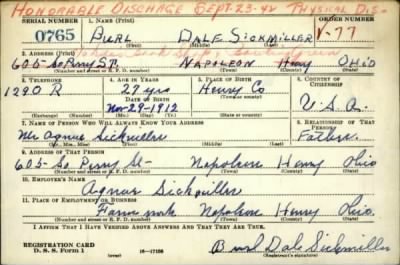 HONORABLE DISCHAGE SEPT-23-42 PHYSICAL DIS-
SERIAL NUMBER 1. NAME (Print) ORDER NUMBER
0765 BURL DALE SICKMILLER V-77
(First) (Middle) (Last)
2. ADDRESS (Print)
605 So Perry ST. NAPOLEON Henry OHIO
(Number and street or R. F. D. number) (Town) (County) (State)
3. TELEPHONE 4. AGE IN YEARS 5. PLACE OF BIRTH 6. COUNTRY OF CITIZENSHIP
1290 R 27 yrs Henry Co
DATE OF BIRTH (Town or county)
Nov-29-1912 U.S.A.
(Exchange) (Number) (Mo.) (Day) (Yr.) (State or country)
7. NAME OF PERSON WHO WILL ALWAYS KNOW YOUR ADDRESS 8. RELATIONSHIP OF THAT PERSON
Mr Sickmiller Father
(Mr., Mrs., Miss) (First) (Middle) (Last)
9. ADDRESS OF THAT PERSON
605- So Perry St- Napoleon Henry Ohio
(Number and street or R. F. D. number) (Town) (County) (State)
10. EMPLOYER'S NAME
Sickmiller
11. PLACE OF EMPLOYMENT OR BUSINESS
Farm work Napoleon Henry Ohio.
(Number and street or R. F. D. number) (Town) (County) (State)
I AFFIRM THAT I HAVE VERIFIED ABOVE ANSWERS AND THAT THEY ARE TRUE.
REGISTRATION CARD
D. S. S. Form 1 16-17105 Burl Dale Sickmiller
(Registrant's signature)